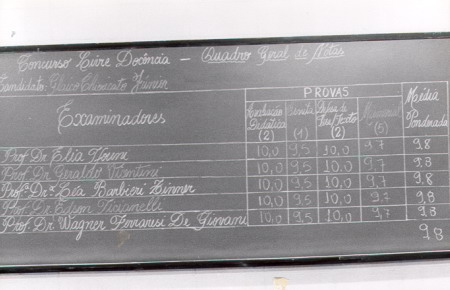 Concurso Livre Docência - Quadro Geral de Notas
Candidato: Júnior
PROVAS
Examinadores
Didática (2) Escrita (1) Defesa de (2) Memorial (5) Média Ponderada
Prof. Dr. Elia 10,0 9,5 10,0 9,7 9,8
Prof. Dr. Geraldo 10,0 9,5 10,0 9,7 9,8
Profª. Drª. Léa Barbieri Zinner 10,0 9,5 10,0 9,7 9,8
Prof. Dr. Edson 10,0 9,5 10,0 9,7 9,8
Prof. Dr. Wagner Ferraresi De Giovani 10,0 9,5 10,0 9,7 9,8
9,8